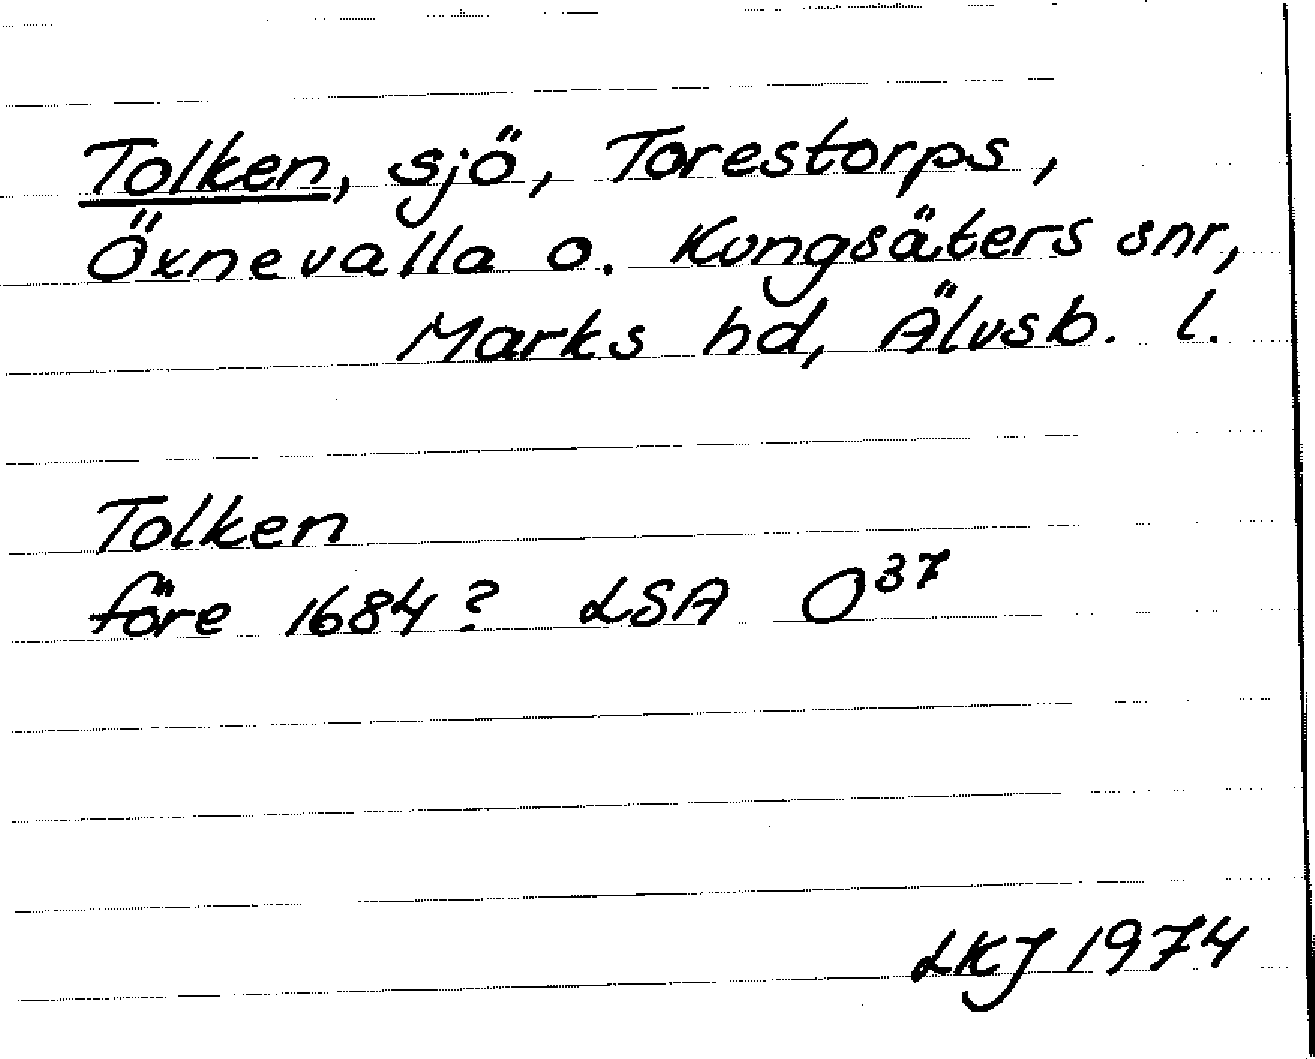 Tolken, sjö, Torestorps,
Öxnevalla o. Kungsäters snr,
Marks hd, Älvsb. l.
Tolken
före 1684? LSA O³⁷
LKJ 1974